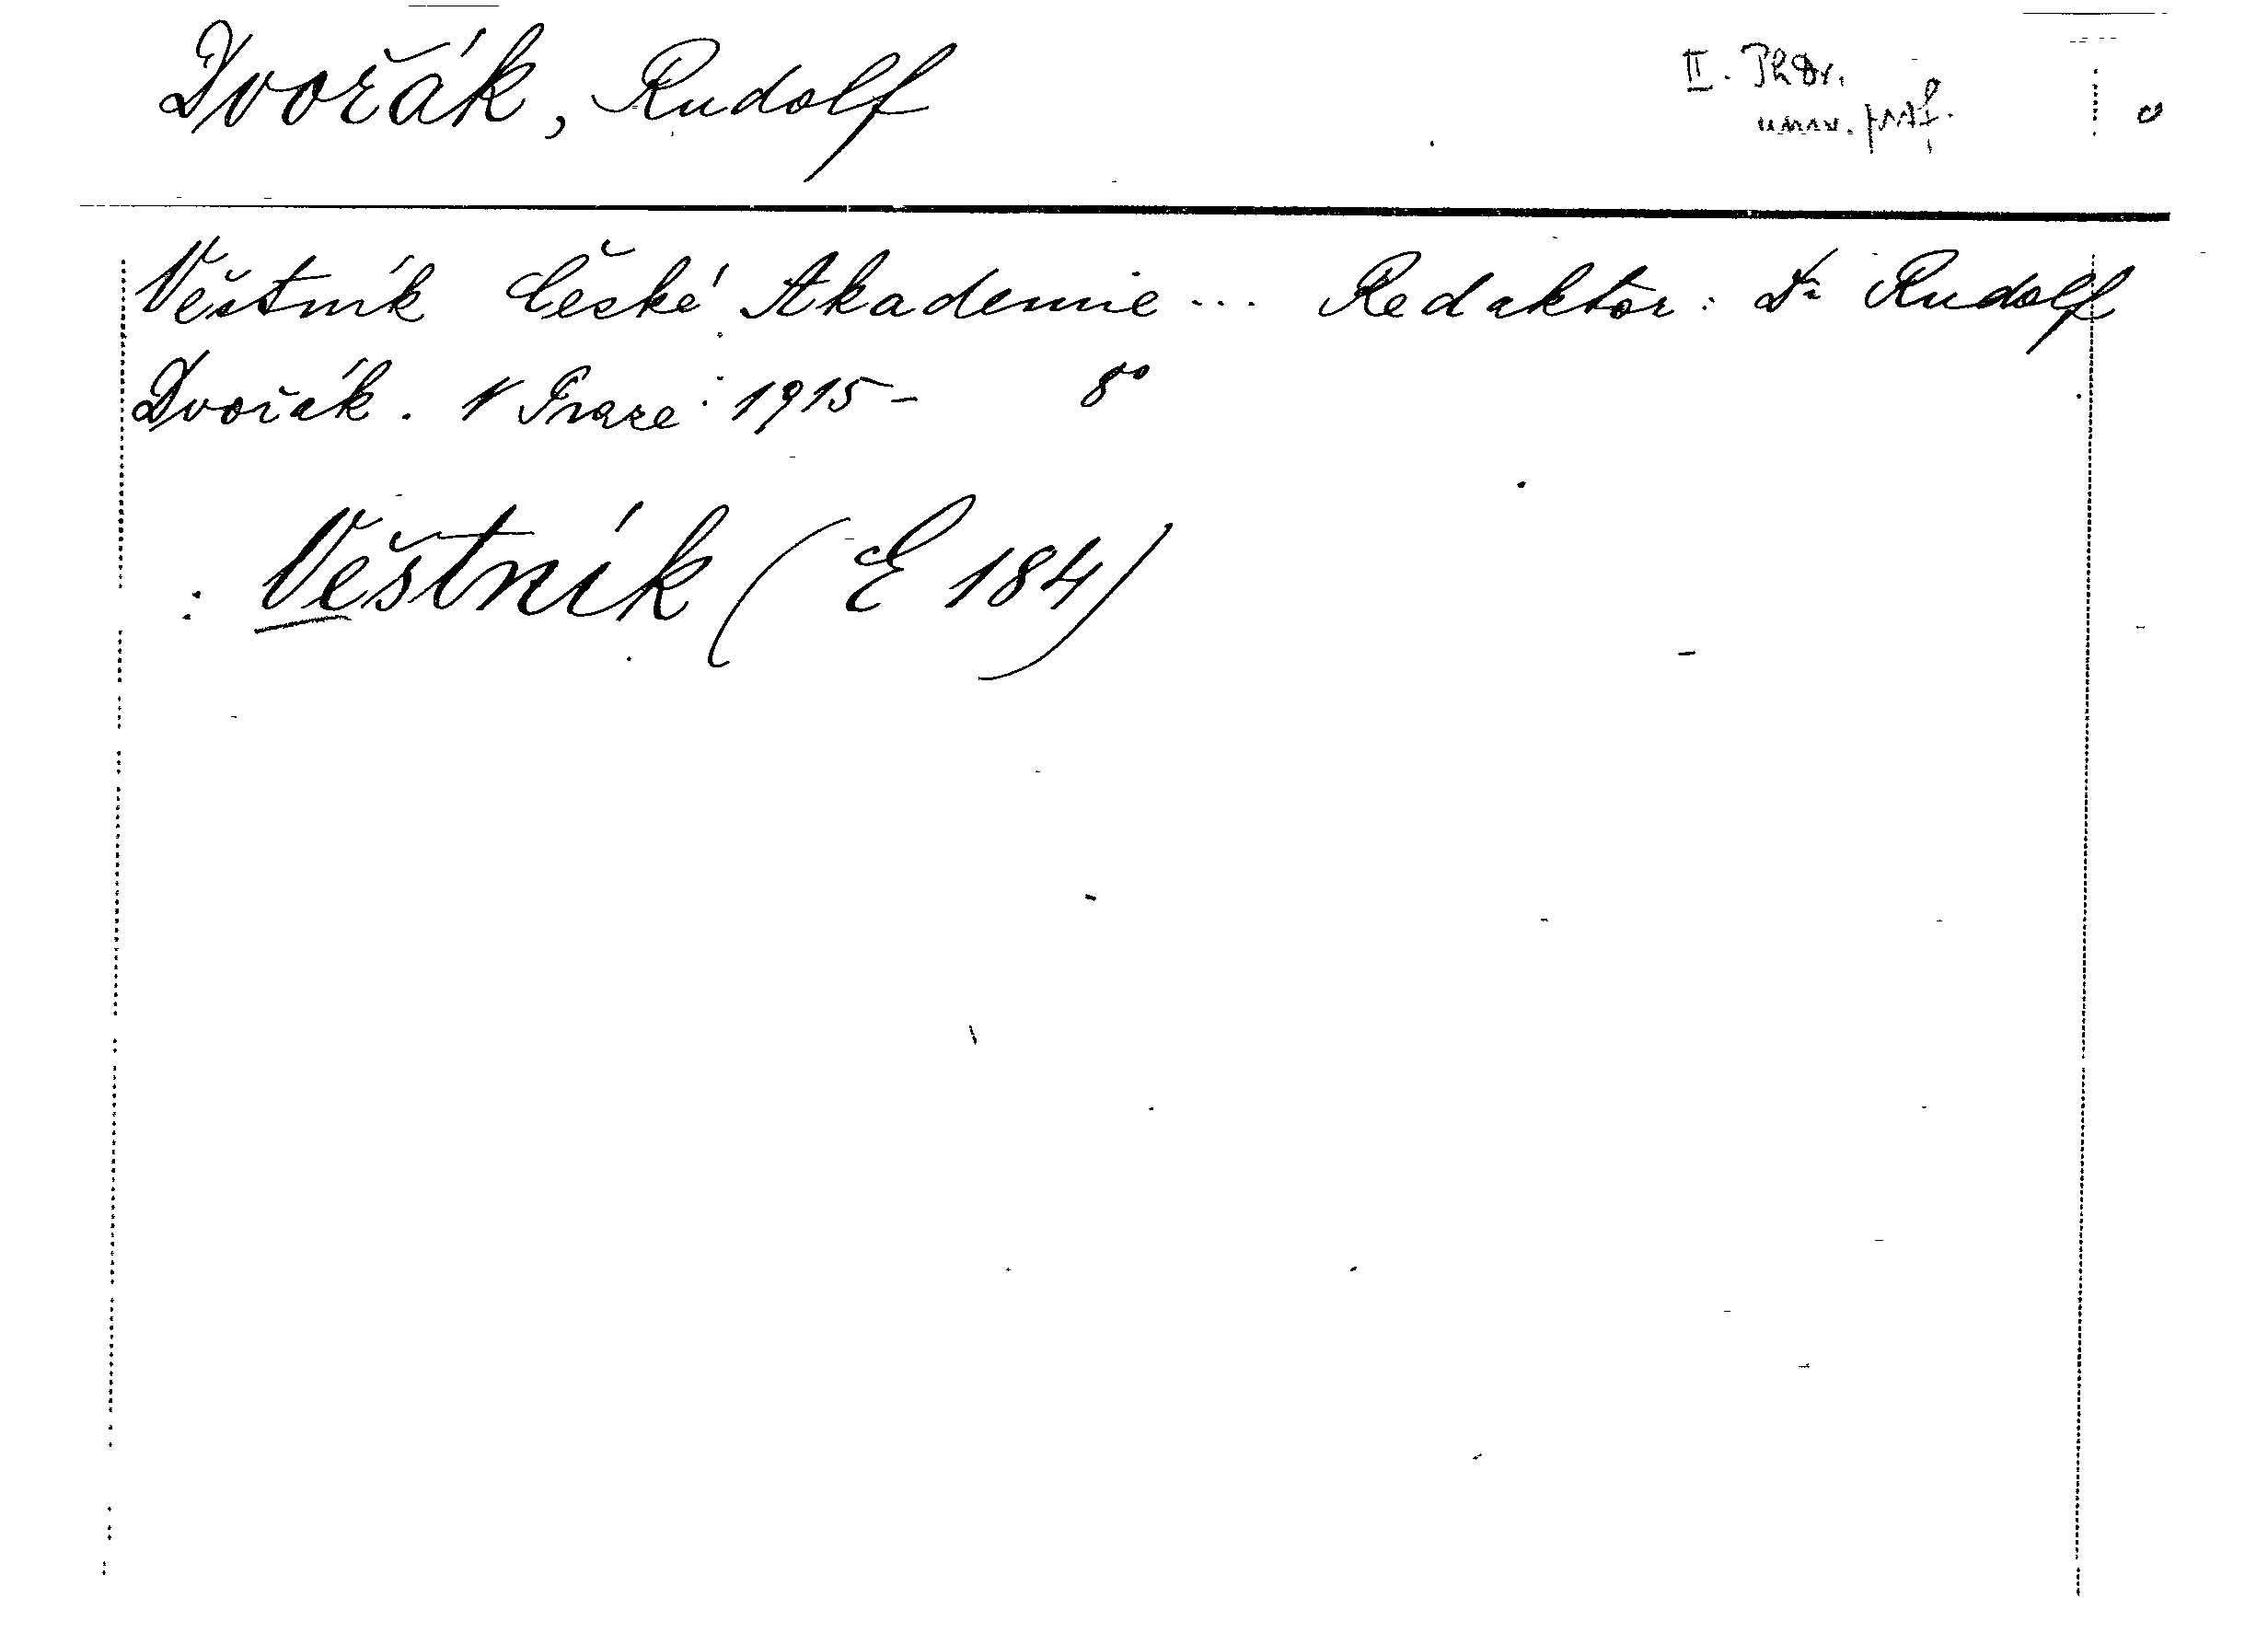 Dvořák, Rudolf
II. PhDr.
univ. prof.
Věstník České Akademie ... Redaktor: Dr Rudolf
Dvořák. V Praze 1915- 8º
: Věstník (E 184)